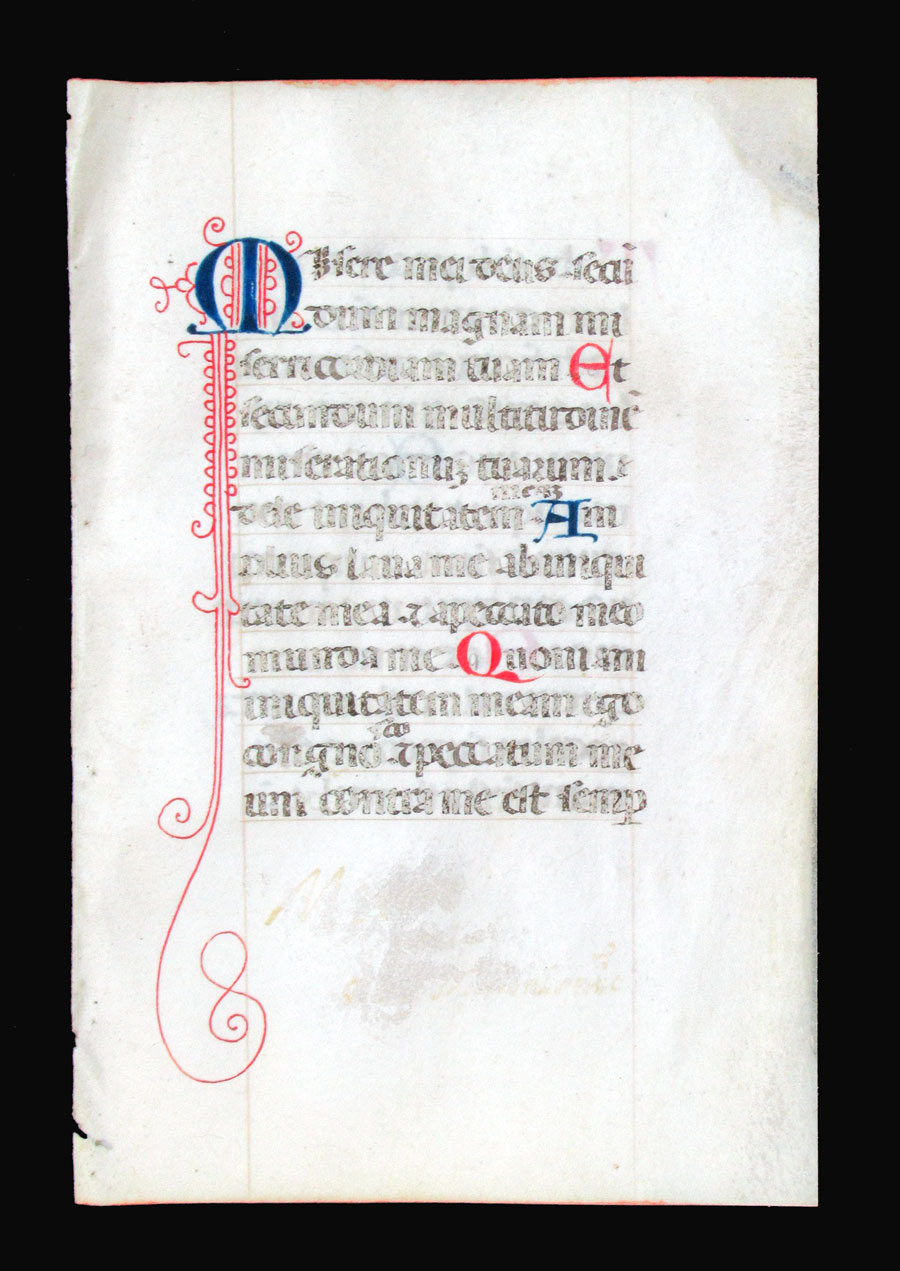 MIsere mei deus secū
dum magnam mi
sericordiam tuam Et
secundum multitudinē
miserationuꝫ tuarum ·
mea₃
dele iniquitatem Am
plius laua me ab iniqui
tate mea ⁊ a peccato meo
munda me Quoniam
iniquitatem meam ego
sco
congno ⁊ peccatum me
um contra me est semꝑ